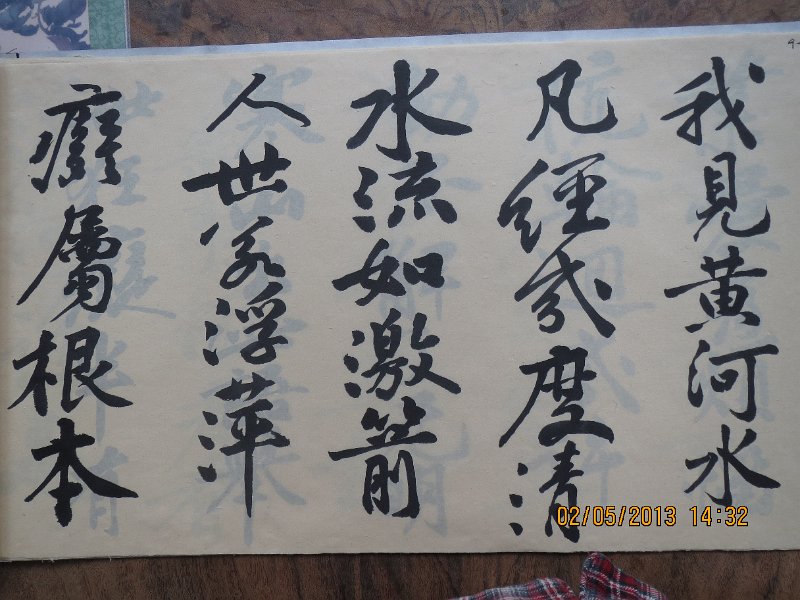 我見黄河水
凡經幾度清
水流如激箭
人世若浮萍
癡屬根本
02/05/2013 14:32